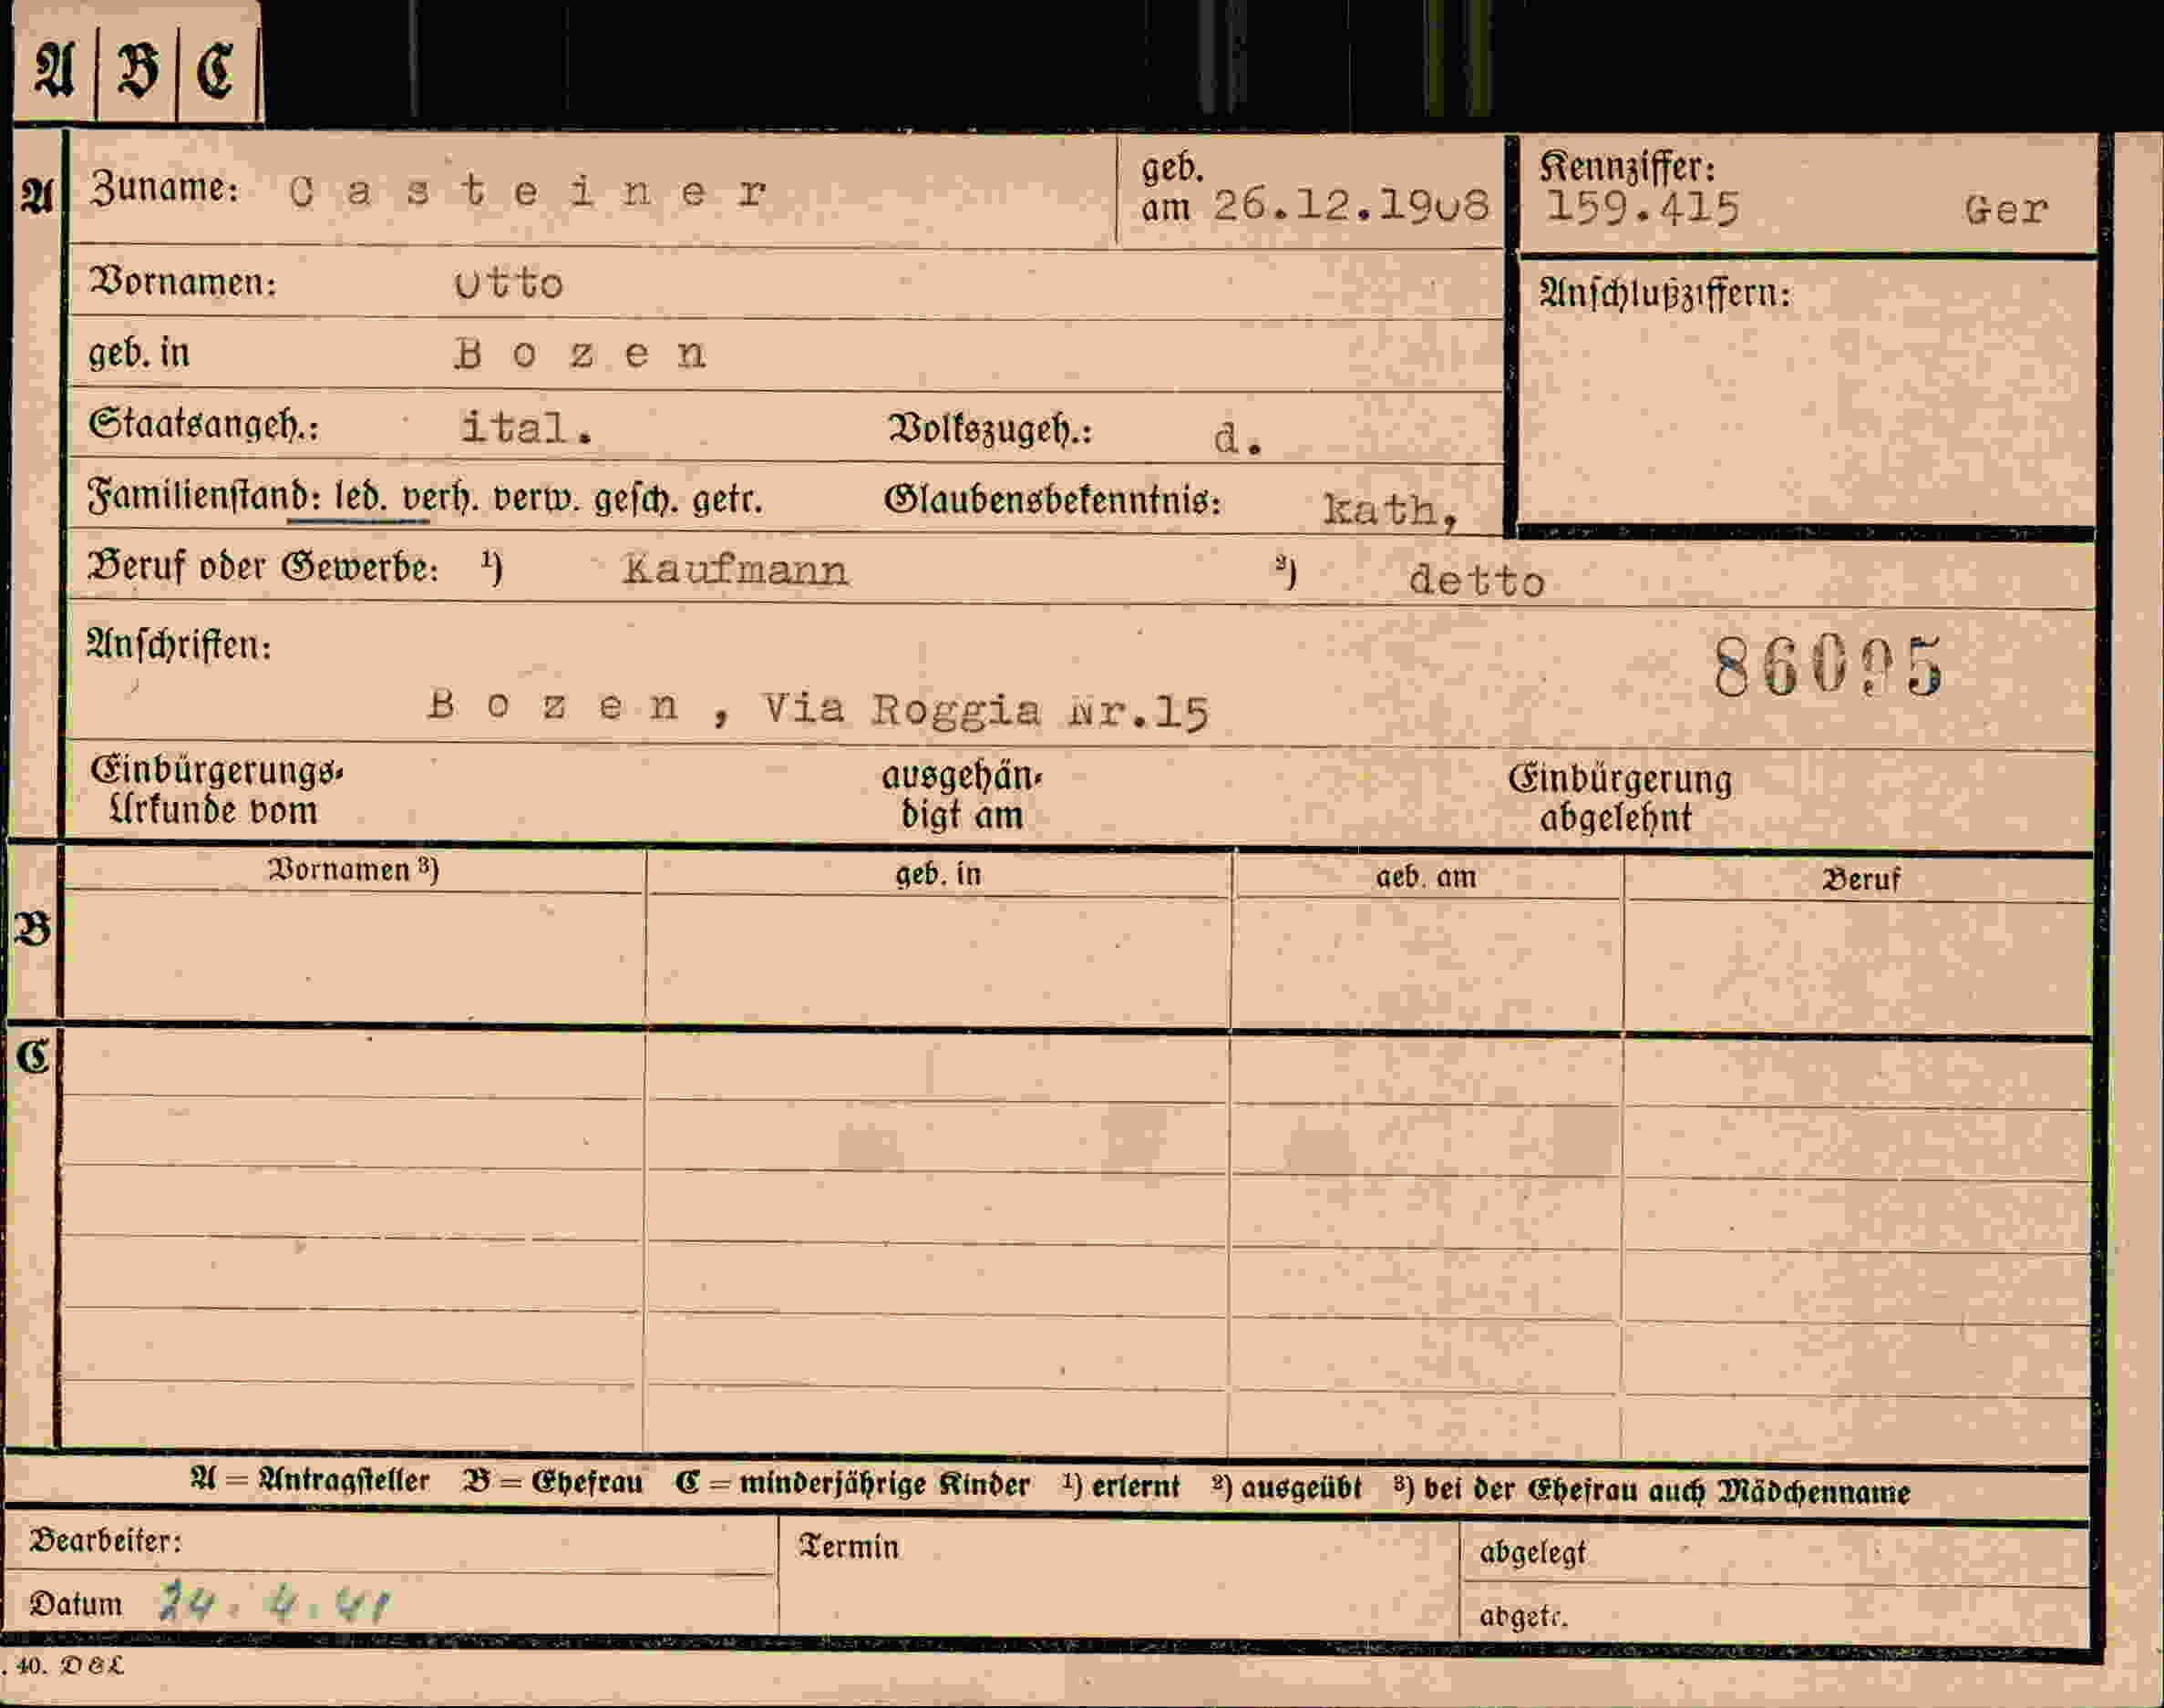 A | B | C
A Zuname: Casteiner geb. am 26.12.1908 Kennziffer: 159.415 Ger
Vornamen: Otto Anschlußziffern:
geb. in Bozen
Staatsangeh.: ital. Volkszugeh.: d.
Familienstand: led. verh. verw. gesch. getr. Glaubensbekenntnis: kath,
Beruf oder Gewerbe: 1) Kaufmann 2) detto
Anschriften: 86095
Bozen, Via Roggia Nr.15
Einbürgerungs- ausgehän- Einbürgerung
Urkunde vom digt am abgelehnt
Vornamen 3) geb. in geb. am Beruf
B
C
A = Antragsteller B = Ehefrau C = minderjährige Kinder 1) erlernt 2) ausgeübt 3) bei der Ehefrau auch Mädchenname
Bearbeiter: Termin abgelegt
Datum 24.4.41 abgetr.
. 40. D&L